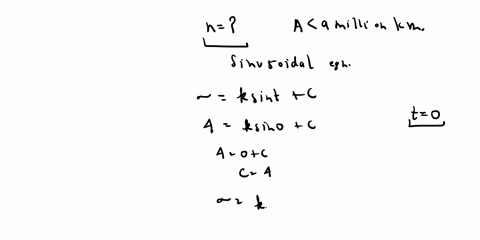 n = ? A < a million km.
Sinusoidal eqn.
~ = k sint + C
A = k sin0 + C
t = 0
A = 0 + C
C = A
~ = k